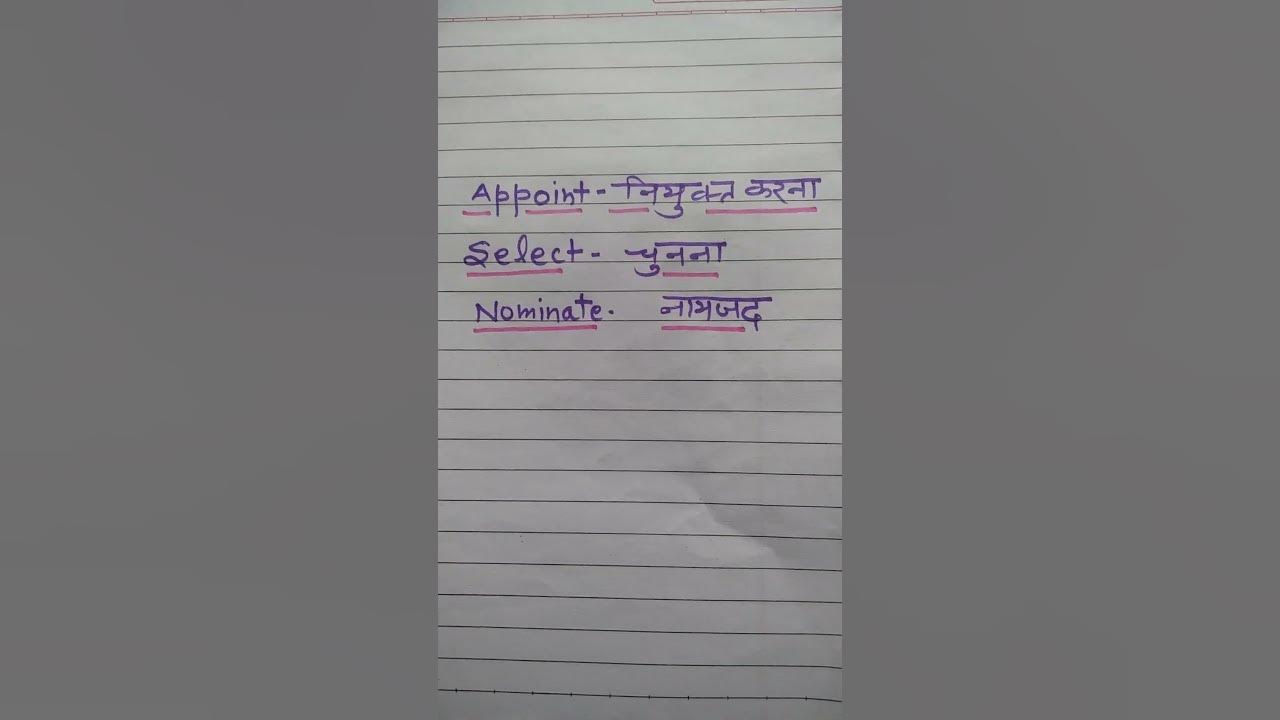 Appoint - नियुक्त करना
Select - चुनना
Nominate. नामजद